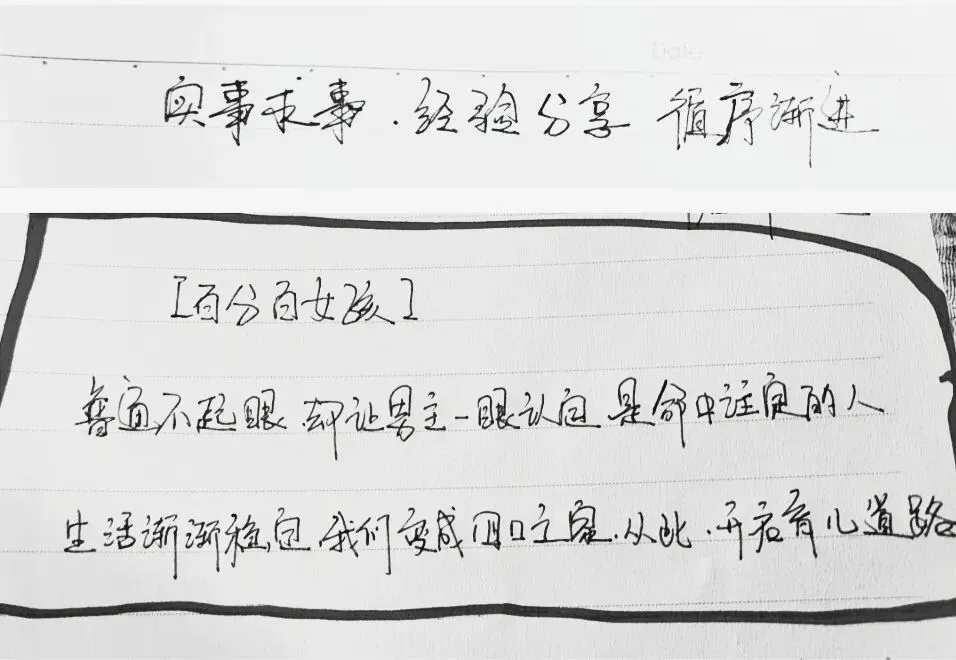 Date
实事求事.经验分享 循序渐进
[百分百女孩]
普通不起眼.却让男主一眼认定是命中注定的人
生活渐渐稳定.我们变成四口之家.从此.开启育儿道路